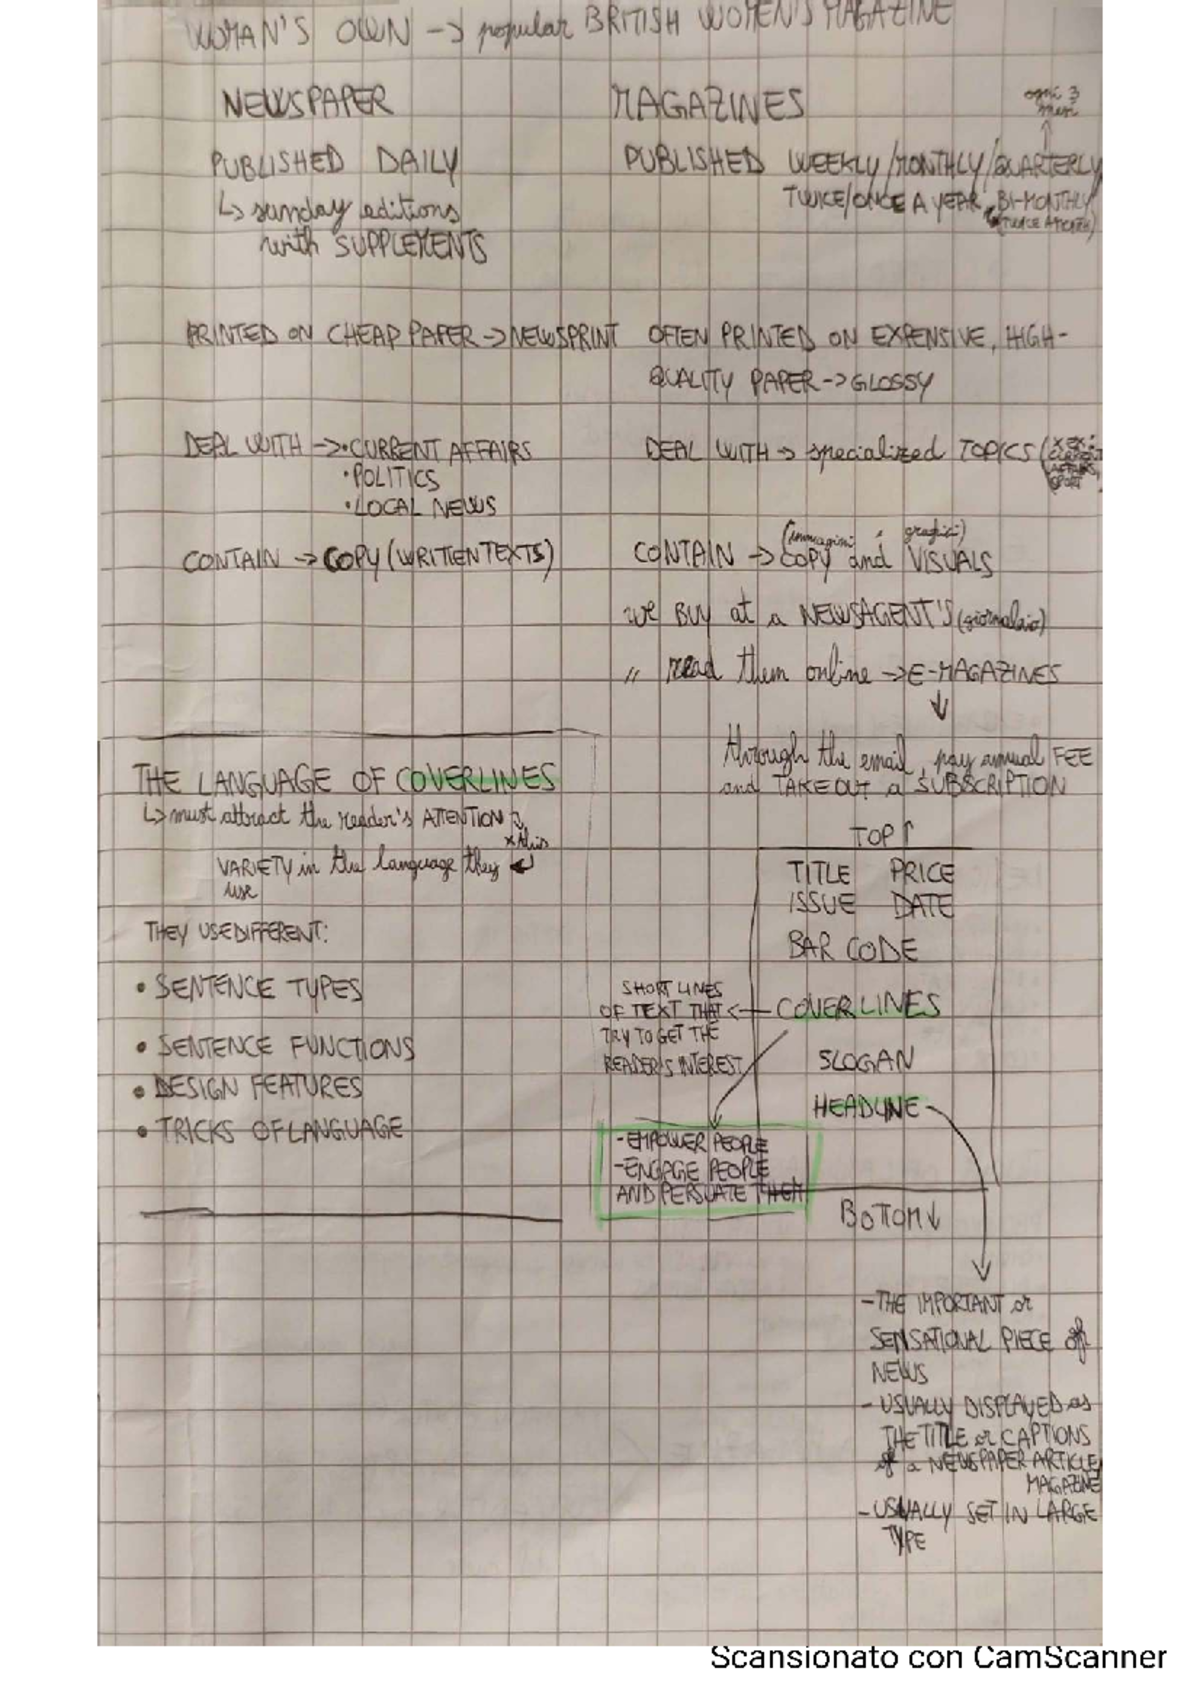 WOMAN'S OWN -> popular BRITISH WOMEN'S MAGAZINE
NEWSPAPER
PUBLISHED DAILY
↳ sunday editions
with SUPPLEMENTS
MAGAZINES
ogni 3
mesi
PUBLISHED WEEKLY/MONTHLY/QUARTERLY
TWICE/ONCE A YEAR, BI-MONTHLY
(TWICE A MONTH)
PRINTED ON CHEAP PAPER -> NEWSPRINT
OFTEN PRINTED ON EXPENSIVE, HIGH-
QUALITY PAPER -> GLOSSY
DEAL WITH -> • CURRENT AFFAIRS
• POLITICS
• LOCAL NEWS
DEAL WITH -> specialized TOPICS (x ex:
AFFAIRS,
SPORT
CONTAIN -> COPY (WRITTEN TEXTS)
(immagini e grafici)
CONTAIN -> COPY and VISUALS
we BUY at a NEWSAGENT'S (giornalaio)
" read them online -> E-MAGAZINES
↓
through the email, pay annual FEE
and TAKE OUT a SUBSCRIPTION
THE LANGUAGE OF COVERLINES
↳ must attract the reader's ATTENTION
x this
VARIETY in the language they
use
THEY USE DIFFERENT:
• SENTENCE TYPES
• SENTENCE FUNCTIONS
• DESIGN FEATURES
• TRICKS OF LANGUAGE
TOP ↑
TITLE PRICE
ISSUE DATE
BAR CODE
COVER LINES
SHORT LINES
OF TEXT THAT <-
TRY TO GET THE
READER'S INTEREST
SLOGAN
HEADLINE
- EMPOWER PEOPLE
- ENGAGE PEOPLE
AND PERSUATE THEM
BOTTOM ↓
- THE IMPORTANT or
SENSATIONAL PIECE of
NEWS
- USUALLY DISPLAYED as
THE TITLE or CAPTIONS
of a NEWSPAPER ARTICLE
MAGAZINE
- USUALLY SET IN LARGE
TYPE
Scansionato con CamScanner